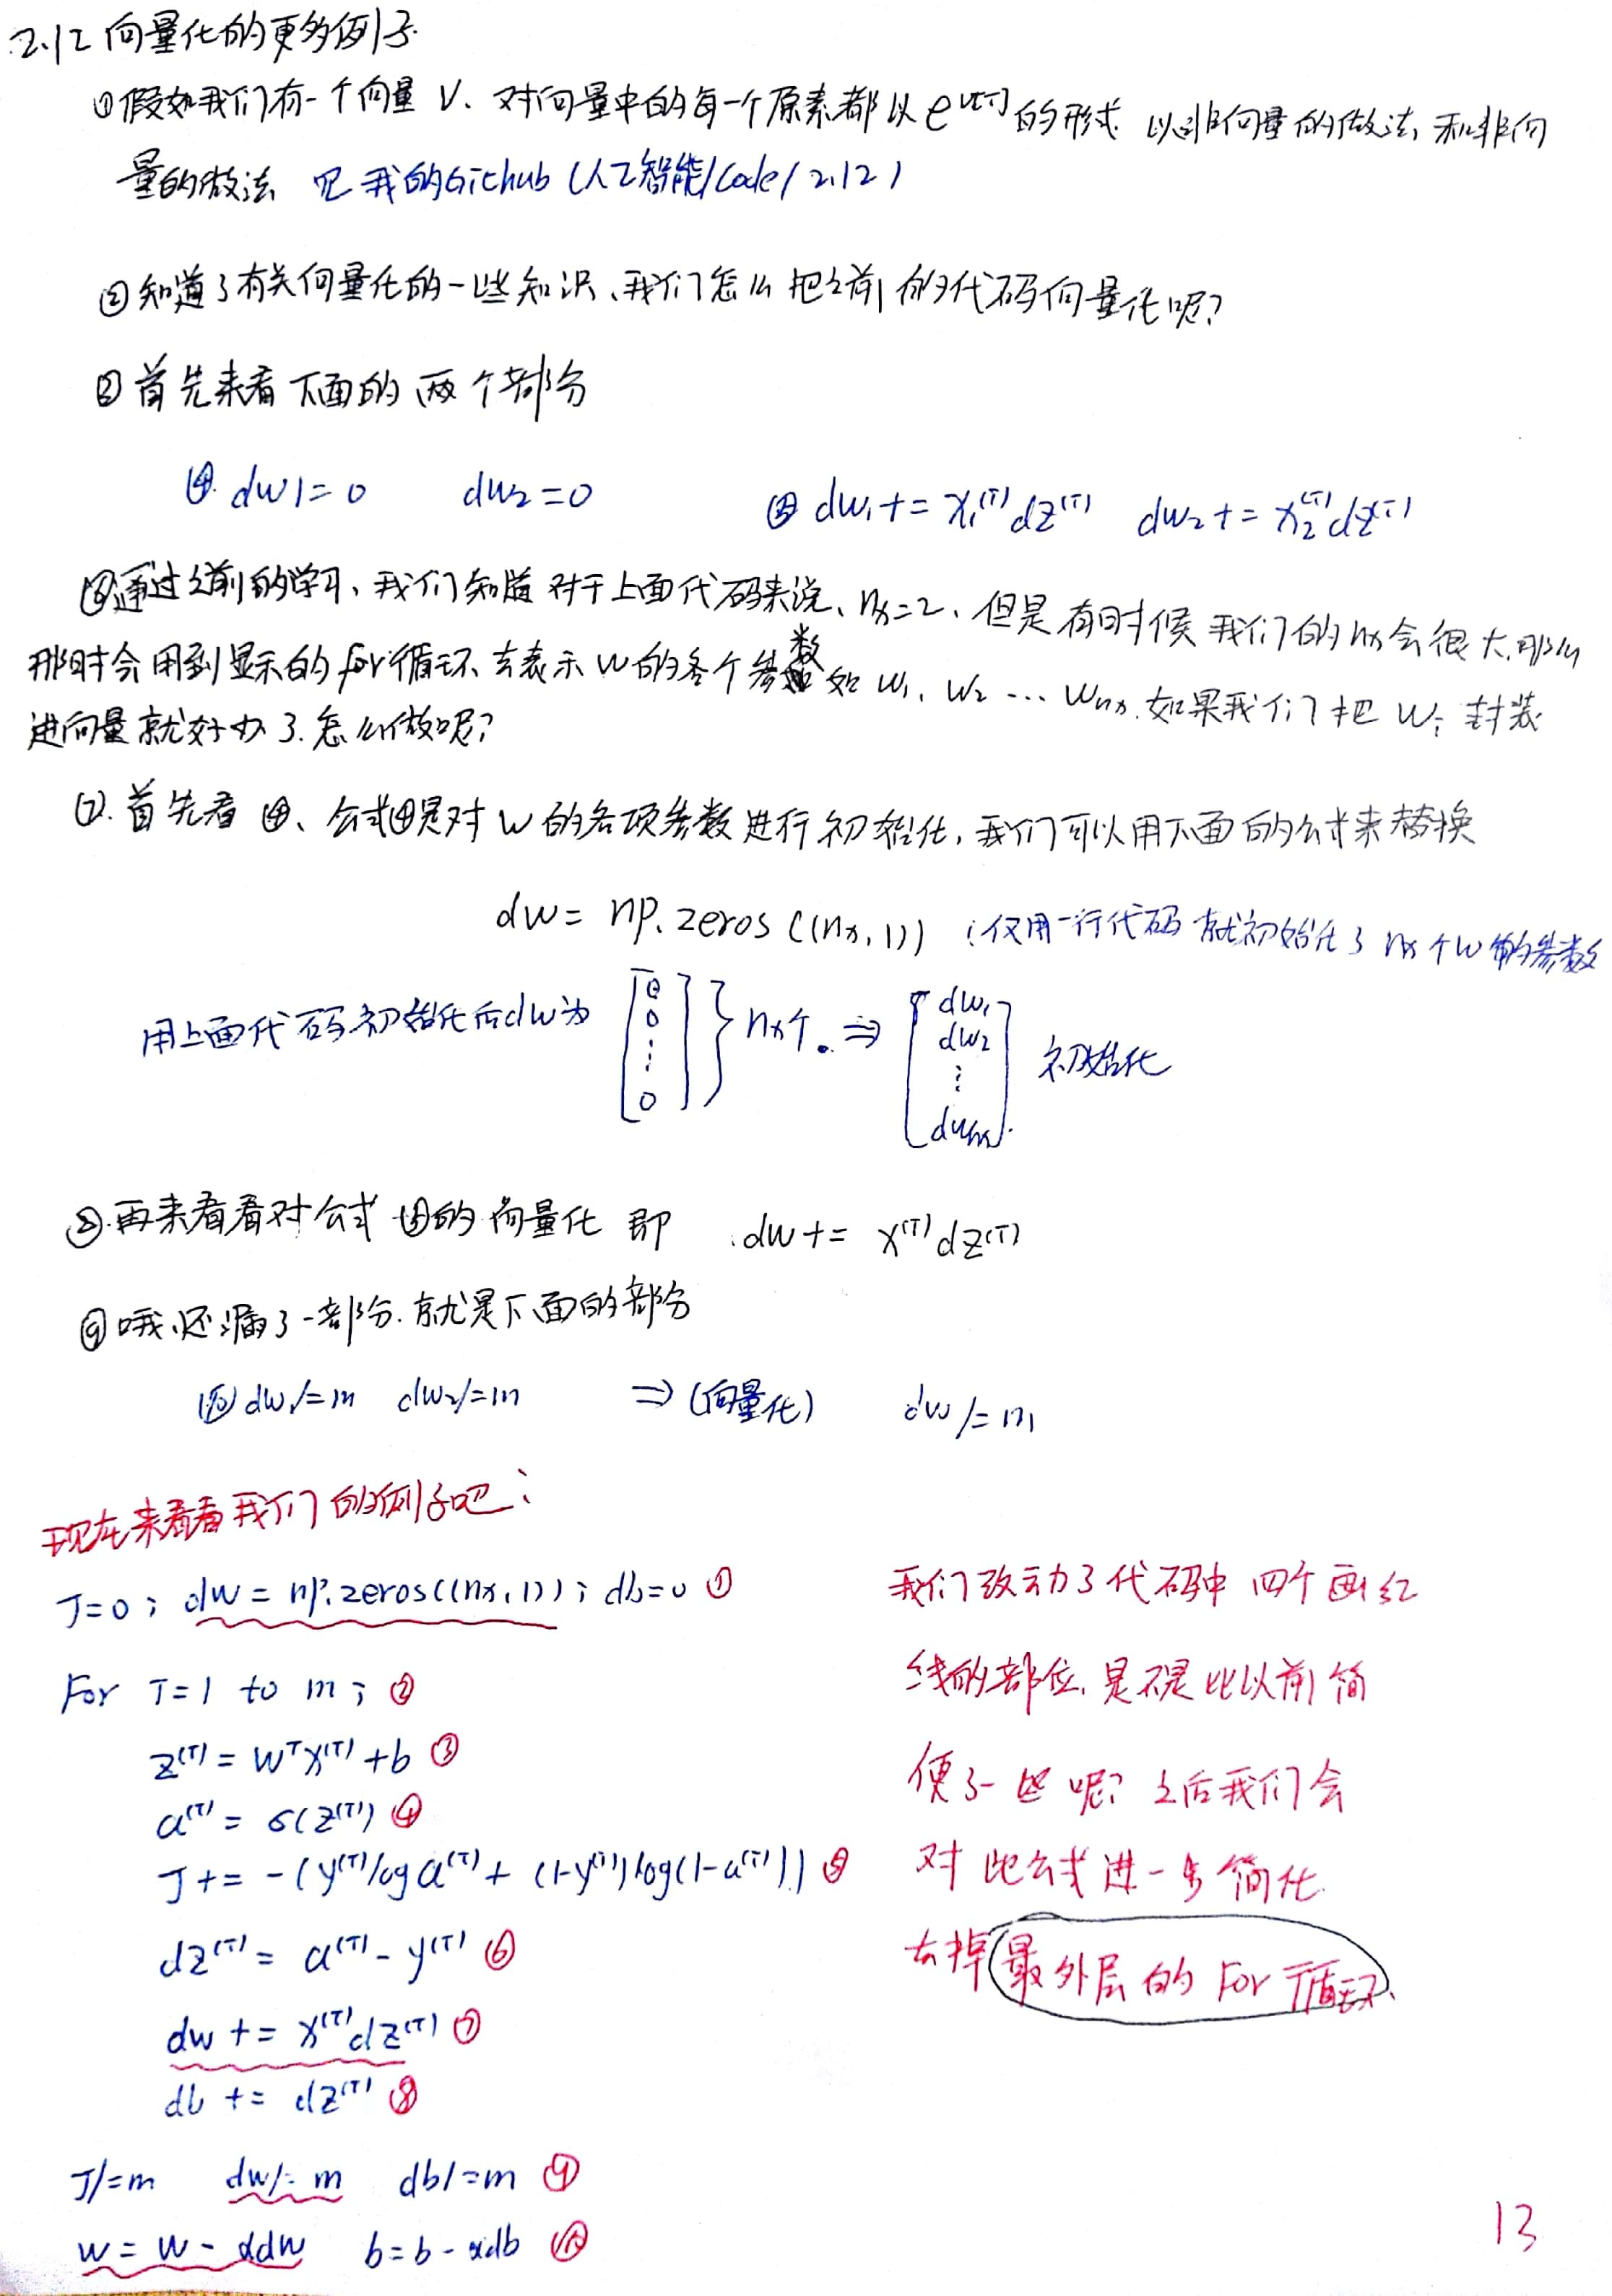 2.12 向量化的更多例子
①假如我们有一个向量 V、对向量中的每一个原素都以 e^v[i] 的形式 以非向量的做法, 和非向
量的做法 见我的Github (人工智能/Code/2.12)
②知道了有关向量化的一些知识、我们怎么把之前的代码向量化呢?
③首先来看下面的两个部分
④. dw1=0 dw2=0 ⑤ dw₁+= x₁⁽ⁱ⁾dz⁽ⁱ⁾ dw₂+= x₂⁽ⁱ⁾dz⁽ⁱ⁾
⑥通过之前的学习、我们知道对于上面代码来说、nx=2、但是有时候我们的nx会很大.那么
那时会用到显示的for循环、去表示w的各个参数 如 w₁、w₂ ··· wnx.如果我们把 wᵢ 封装
进向量就好办了.怎么做呢?
⑦. 首先看④、公式④是对w的各项参数进行初始化,我们可以用下面的公式来替换
dw= np.zeros((nx,1)) (仅用一行代码就初始化了nx个w的参数
用上面代码初始化后dw为 [0 0 ⋮ 0] } nx个. ⇒ [dw₁ dw₂ ⋮ dwnx] 初始化
⑧.再来看看对公式⑤的向量化 即 dw+= x⁽ⁱ⁾dz⁽ⁱ⁾
⑨哦、还漏了一部分.就是下面的部分
⑩ dw₁/=m dw₂/=m ⇒ (向量化) dw/=m
现在来看看我们的例子吧:
J=0; dw = np.zeros((nx,1)); db=0 ①
For i=1 to m; ②
z⁽ⁱ⁾ = wᵀx⁽ⁱ⁾+b ③
a⁽ⁱ⁾ = σ(z⁽ⁱ⁾) ④
J += -(y⁽ⁱ⁾log a⁽ⁱ⁾+ (1-y⁽ⁱ⁾)log(1-a⁽ⁱ⁾)) ⑤
dz⁽ⁱ⁾ = a⁽ⁱ⁾-y⁽ⁱ⁾ ⑥
dw += x⁽ⁱ⁾dz⁽ⁱ⁾ ⑦
db += dz⁽ⁱ⁾ ⑧
J/=m dw/=m db/=m ⑨
w = w - αdw b=b-αdb ⑩
我们改动了代码中四个画红
线的部位,是不是比以前简
便了一些呢? 之后我们会
对此公式进一步简化
去掉最外层的For循环.
13